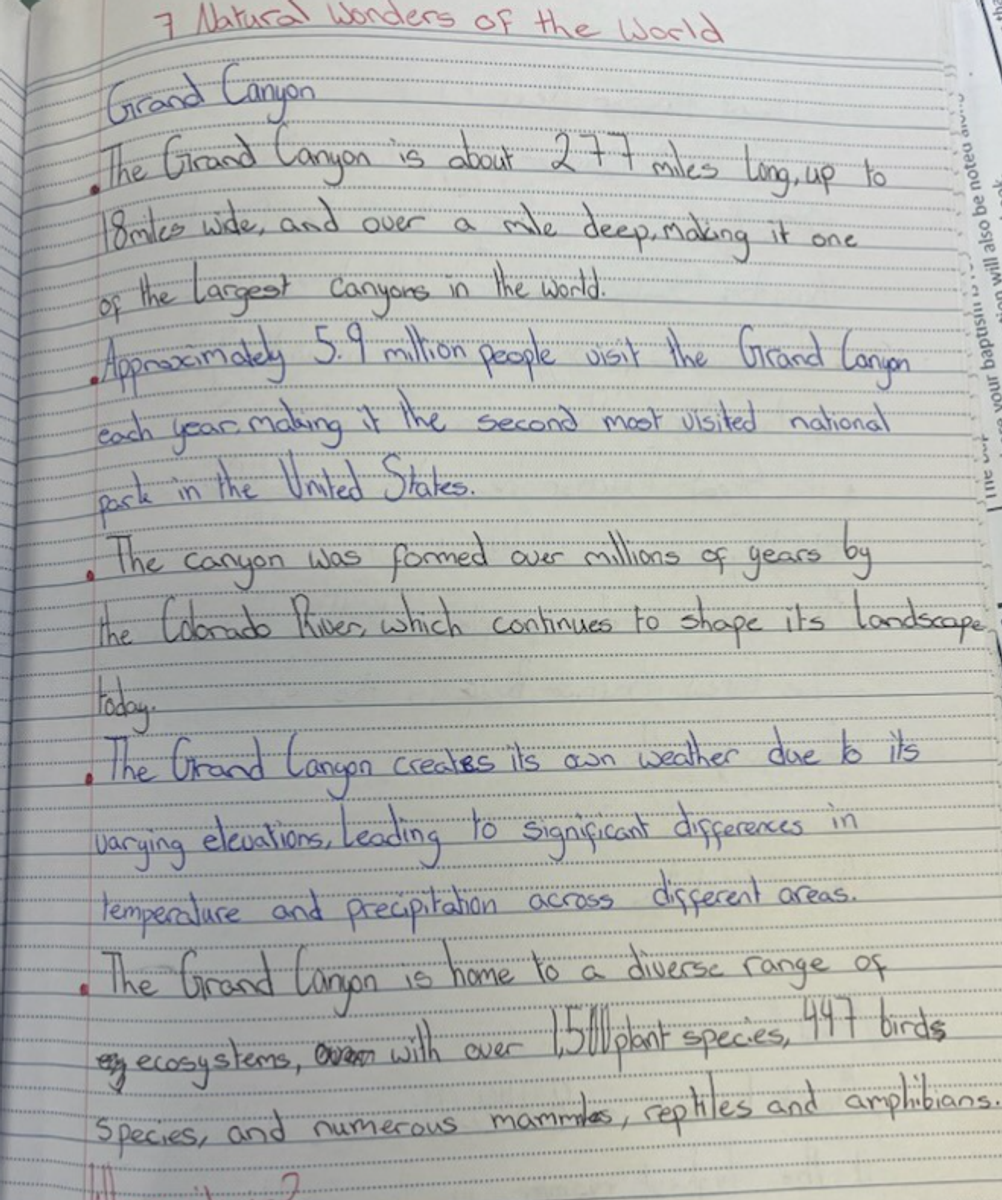 7 Natural Wonders of the World
Grand Canyon
. The Grand Canyon is about 277 miles long, up to
18miles wide, and over a mile deep, making it one
of the largest canyons in the world.
. Approximately 5.9 million people visit the Grand Canyon
each year, making it the second most visited national
park in the United States.
. The canyon was formed over millions of years by
the Colorado River, which continues to shape its landscape
today.
. The Grand Canyon creates its own weather due to its
varying elevations, leading to significant differences in
temperature and precipitation across different areas.
. The Grand Canyon is home to a diverse range of
ecosystems, with over 1,500 plant species, 447 birds
species, and numerous mammles, reptiles and amphibians.
your baptism
will also be noted